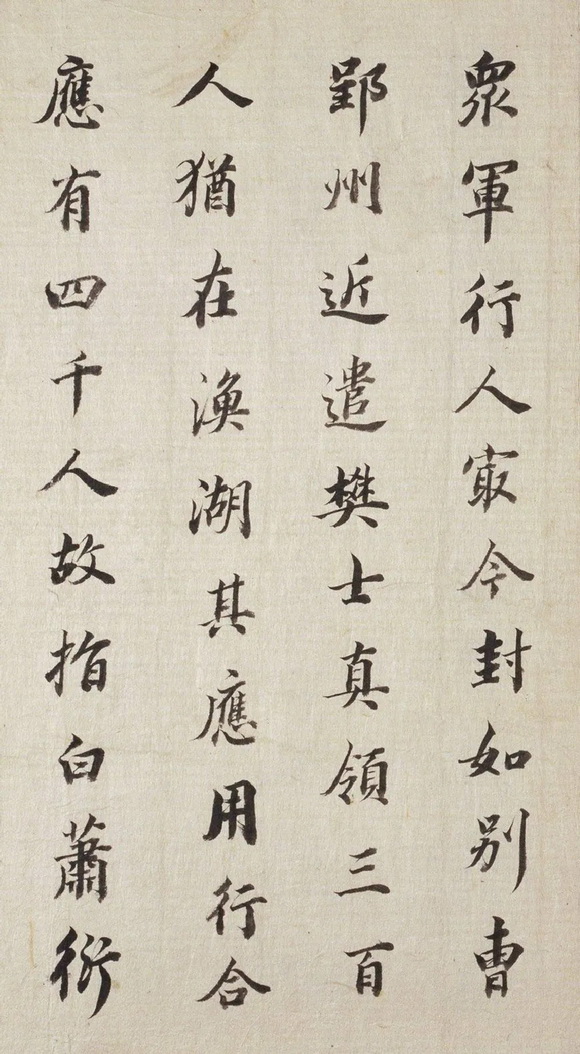 眾軍行人最今封如別曹
郢州近遣樊士真領三百
人猶在渙湖其應用行合
應有四千人故指白蕭衍